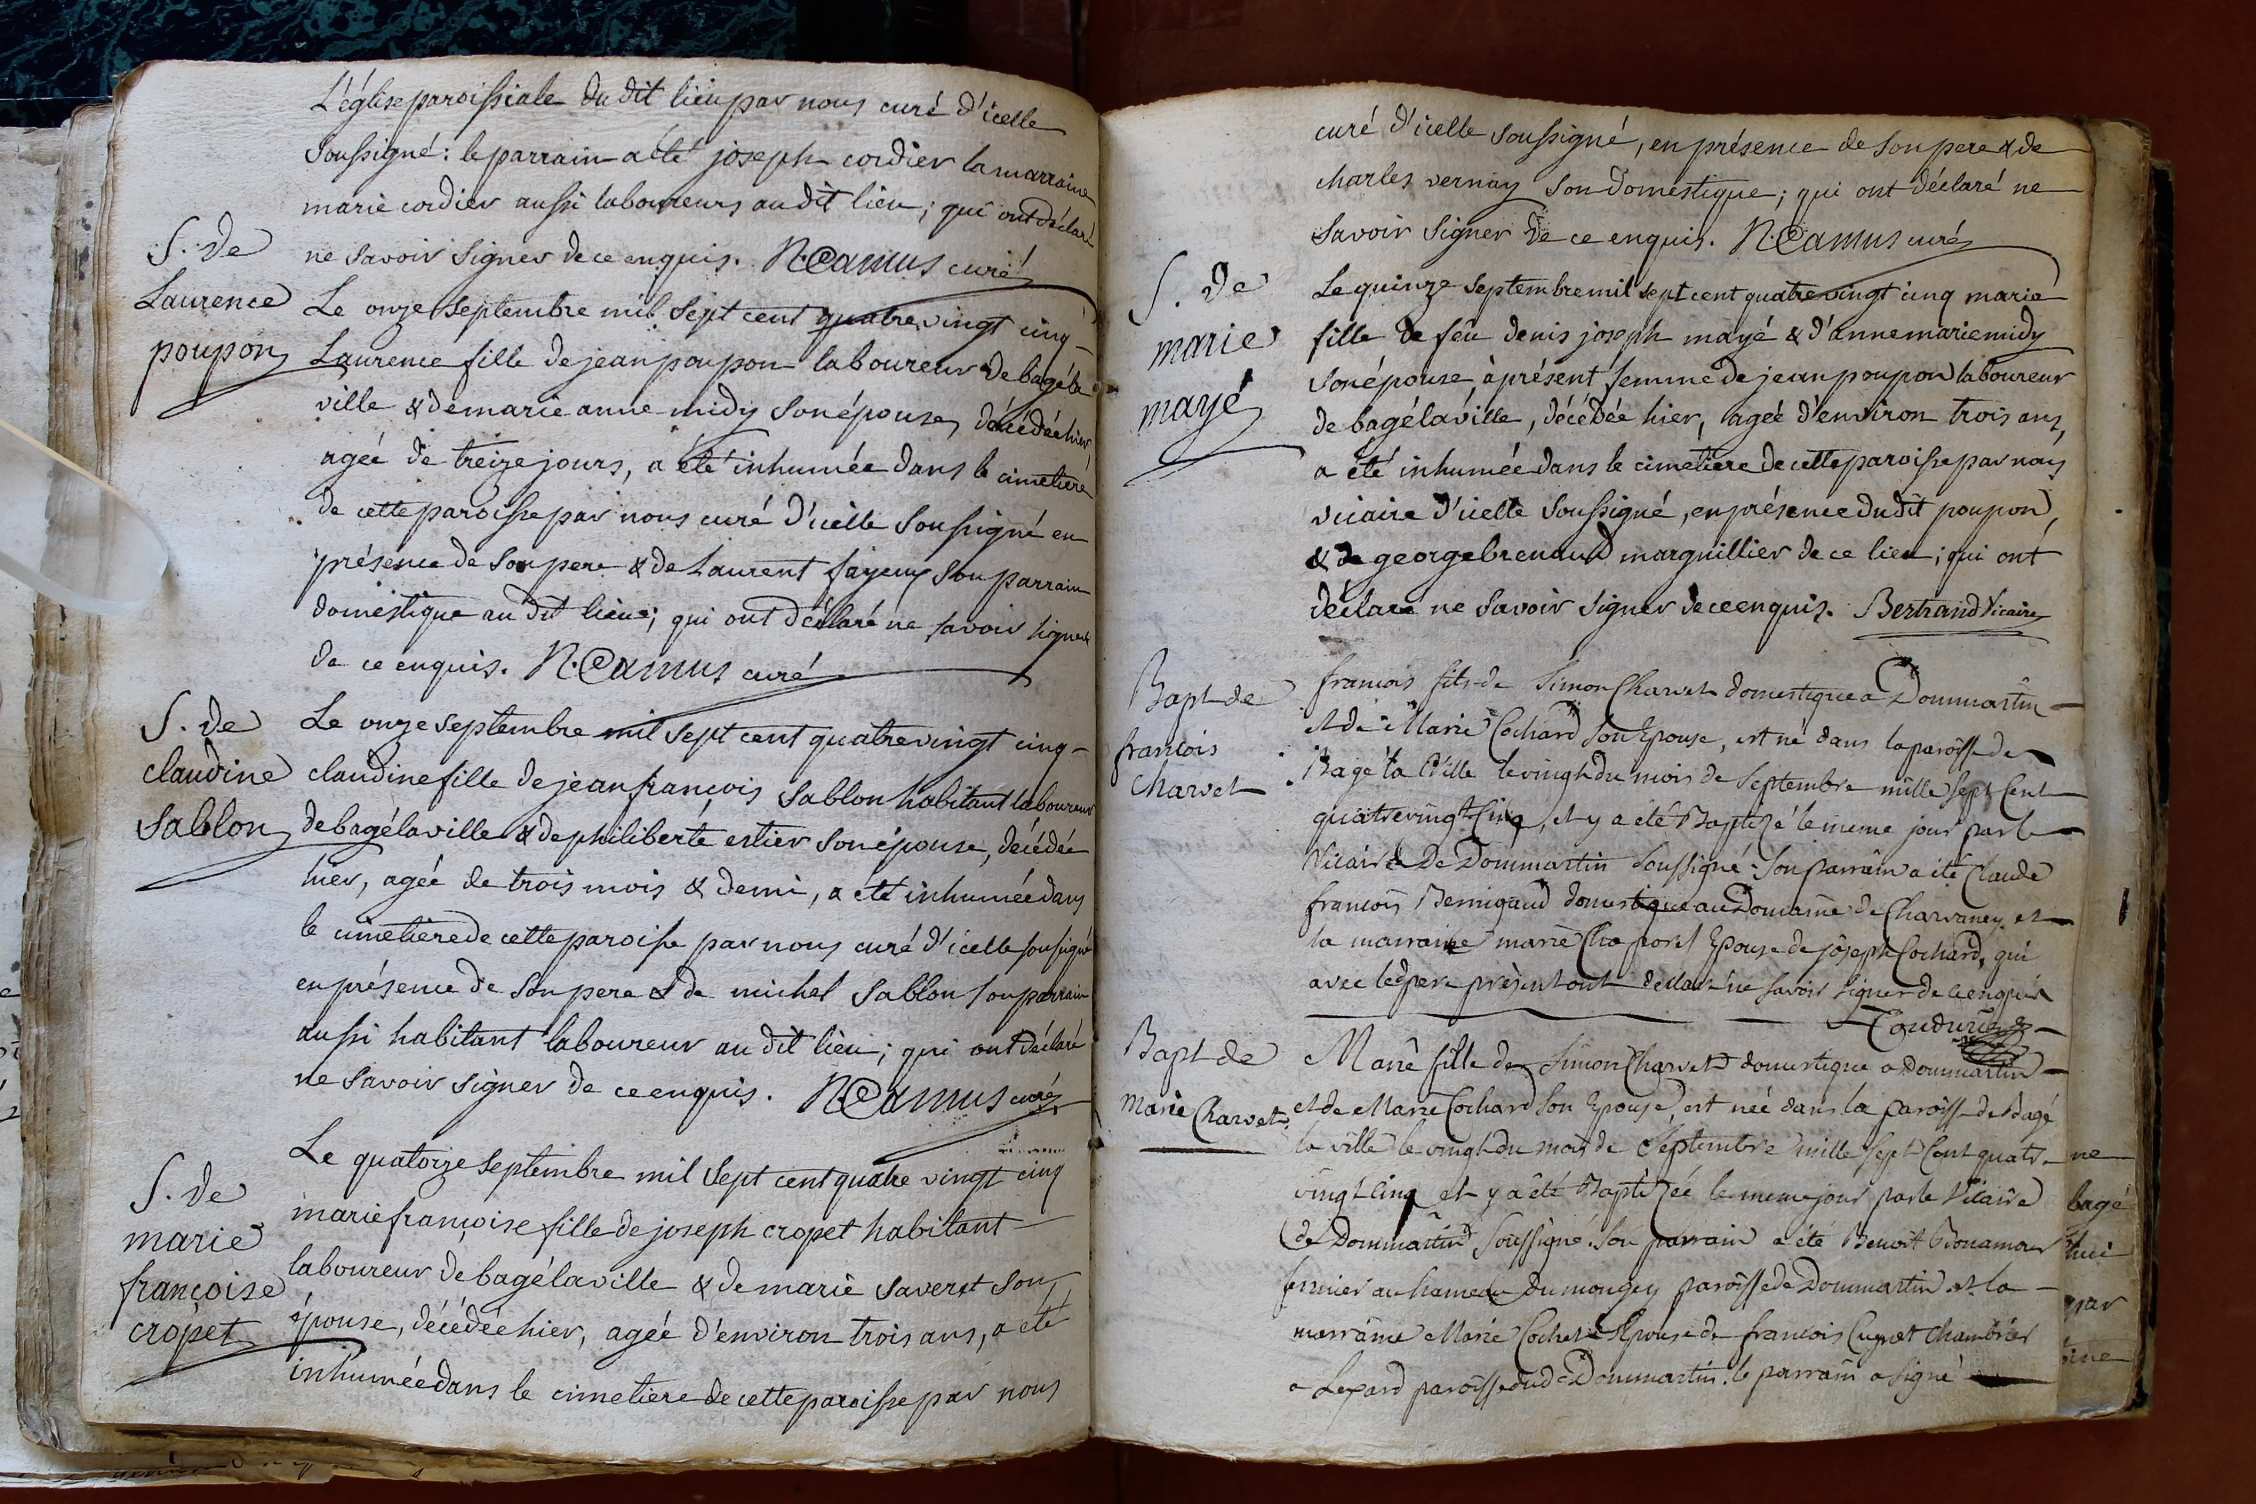 L'église paroissiale du dit lieu par nous curé d'icelle
soussigné: le parrain a été joseph cordier la marraine
marie cordier aussi laboureurs au dit lieu; qui ont déclaré
ne savoir signer de ce enquis. N. Camus curé
S. de
Laurence
poupon
Le onze septembre mil sept cent quatre vingt cinq
Laurence fille de jean poupon laboureur de bagé la
ville & de marie anne midy son épouse, décédée hier
agée de treize jours, a été inhumée dans le cimetiere
de cette paroisse par nous curé d'icelle soussigné en
présence de son pere & de Laurent son parrain
domestique au dit lieu; qui ont déclaré ne savoir signer
de ce enquis. N. Camus curé
S. de
claudine
sablon
Le onze septembre mil sept cent quatre vingt cinq
claudine fille de jean françois sablon habitant laboureur
de bagé la ville & de philiberte estier son épouse, décédée
hier, agée de trois mois & demi, a été inhumée dans
le cimetiere de cette paroisse par nous curé d'icelle soussigné
en présence de son pere & de michel sablon son parrain
aussi habitant laboureur au dit lieu; qui ont déclaré
ne savoir signer de ce enquis. N. Camus curé
S. de
marie
françoise
cropet
Le quatorze septembre mil sept cent quatre vingt cinq
marie françoise fille de joseph cropet habitant
laboureur de bagé la ville & de marie saveret son
épouse, décédée hier, agée d'environ trois ans, a été
inhumée dans le cimetiere de cette paroisse par nous
curé d'icelle soussigné, en présence de son pere & de
charles vernay son domestique; qui ont déclaré ne
savoir signer de ce enquis. N. Camus curé
S. de
marie
mayé
Le quinze septembre mil sept cent quatre vingt cinq marie
fille de feu denis joseph mayé & d'anne marie midy
son épouse, à présent femme de jean poupon laboureur
de bagé la ville, décédée hier, agée d'environ trois ans,
a été inhumée dans le cimetiere de cette paroisse par nous
vicaire d'icelle soussigné, en présence du dit poupon,
& de george brenaud marguillier de ce lieu; qui ont
déclaré ne savoir signer de ce enquis. Bertrand Vicaire
Bapt de
francois
Charvet
francois fils de Simon Charvet domestique a Dommartin
et de Marie Cochard son Epouse, est né dans la paroisse de
Bagé la Ville le vingt du mois de septembre mille sept Cent
quatre vingt Cinq, et y a été Baptizé le meme jour par le
Vicaire De Dommartin soussigné: Son parrain a été Claude
francois domestique au Domaine de Charvaney et
la marraine marie Epouse de joseph Cochard, qui
avec le pere présent ont déclaré ne savoir signer de ce enquis
Coudurier
Bapt de
marie Charvet
Marie fille de Simon Charvet domestique a dommartin
et de Marie Cochard son Epouse, est née dans la paroisse de Bagé
la ville le vingt du mois de Septembre mille sept Cent quatre
vingt Cinq et y a été Baptizée le meme jour par le Vicaire
de Dommartin soussigné. Son parrain a été Benoit Bonamour
fermier au hameau du mongey paroisse de Dommartin et la
marraine Marie Cochet Epouse de francois Cugnet Chambrier
a Lepard paroisse dud Dommartin. le parrain a signé
ne
bagé
par